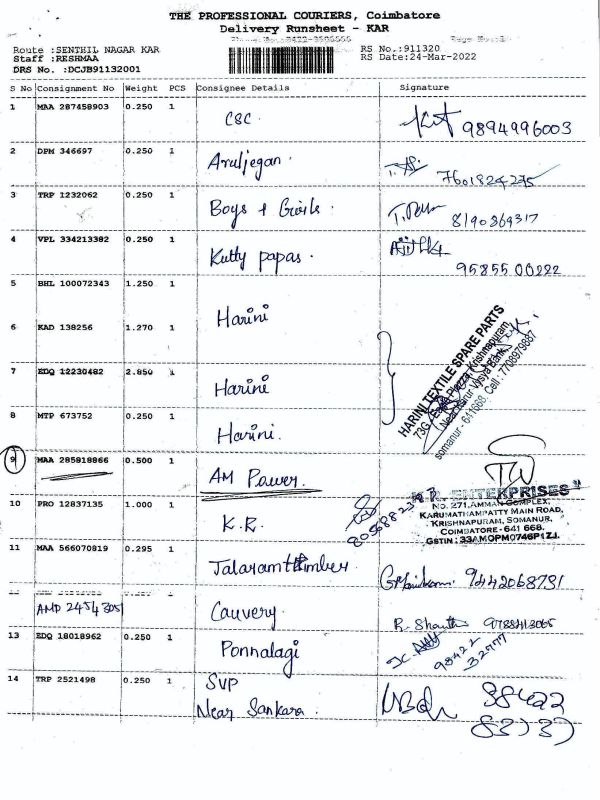 THE PROFESSIONAL COURIERS, Coimbatore
Delivery Runsheet - KAR
Route :SENTHIL NAGAR KAR
Staff :RESHMAA
DRS No. :DCJB91132001
RS No.:911320
RS Date:24-Mar-2022
S No Consignment No Weight PCS Consignee Details Signature
1 MAA 287458903 0.250 1 CSC 9894996003
2 DPM 346697 0.250 1 Aruljegan. 7601824275
3 TRP 1232062 0.250 1 Boys & Girls. 8190869317
4 VPL 334213382 0.250 1 Kutty papas. 95855 00222
5 BHL 100072343 1.250 1 Harini
6 KAD 138256 1.270 1
7 EDQ 12230482 2.850 1 Harini
8 MTP 673752 0.250 1 Harini.
HARINI TEXTILE SPARE PARTS
73G, Plaza, Krishnapuram,
Near Karur Vysya Bank,
somanur - 641668. Cell : 7708979887
9 MAA 285818866 0.500 1 AM Power.
10 PRO 12837135 1.000 1 K.R.
ENTERPRISES
NO. 271, AMMAN COMPLEX,
KARUMATHAMPATTY MAIN ROAD,
KRISHNAPURAM, SOMANUR,
COIMBATORE - 641 668.
GSTIN : 33AMOPM0746P1ZJ.
11 MAA 566070819 0.295 1 Jalaram timber 9442068731
AMD 24543051 Cauvery. R. Shanthi 9788413065
13 EDQ 18018962 0.250 1 Ponnalagi 98422 32777
14 TRP 2521498 0.250 1 SVP
Near Sankara. 98422
83737